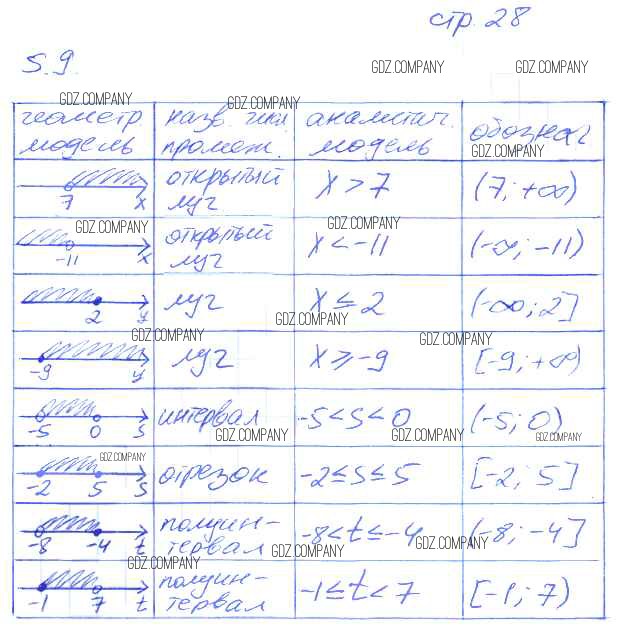 стр. 28
5.9.
GDZ.COMPANY GDZ.COMPANY
GDZ.COMPANY GDZ.COMPANY
геометр. модель
назв. числ. промеж.
аналитич. модель
обознач
GDZ.COMPANY
7 x
открытый луч
x > 7
(7; +∞)
GDZ.COMPANY GDZ.COMPANY
-11 x
открытый луч
x < -11
(-∞; -11)
2 y
луч
x ≤ 2
(-∞; 2]
GDZ.COMPANY
GDZ.COMPANY GDZ.COMPANY
-9 y
луч
x ≥ -9
[-9; +∞)
-5 0 s
интервал
-5 < s < 0
(-5; 0)
GDZ.COMPANY GDZ.COMPANY GDZ.COMPANY
GDZ.COMPANY
-2 5 s
отрезок
-2 ≤ s ≤ 5
[-2; 5]
-8 -4 t
полуин-
тервал
-8 < t ≤ -4
(-8; -4]
GDZ.COMPANY GDZ.COMPANY
GDZ.COMPANY
-1 7 t
полуин-
тервал
-1 ≤ t < 7
[-1; 7)